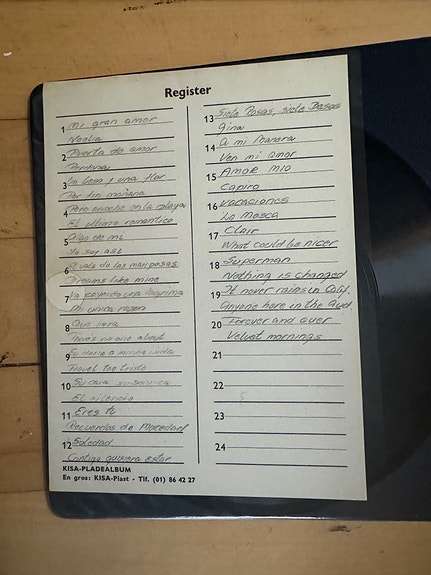 Register
1 Mi gran amor
Noelia
2 Puerta de amor
Perdona
3 Un beso y una flor
Por fin mañana
4 Pero anoche en la playa
El ultimo romantico
5 Algo de mi
Yo soy asi
6 El vals de las mariposas
Dreams like mine
7 La palabra una lagrima
Mi unica razon
8 Que sera
There's no one about
9 minha
Travel tee triste
10 Su cara su sonrisa
El silencio
11 Eres tu
Recuerdos de Mocedad
12 Soledad
Contigo quisiera estar
KISA-PLADEALBUM
En gros: KISA-Plast - Tlf. (01) 86 42 27
13 Siete Rosas, siete Besos
Gina
14 A mi Manera
Ven mi amor
15 Amor mio
Capiro
16 Vacaciones
La Mosca
17 Clair
What could be nicer
18 Superman
Nothing is changed
19 It never rains in Calif.
Anyone here in the Aud.
20 Forever and ever
Velvet mornings
21
22
23
24